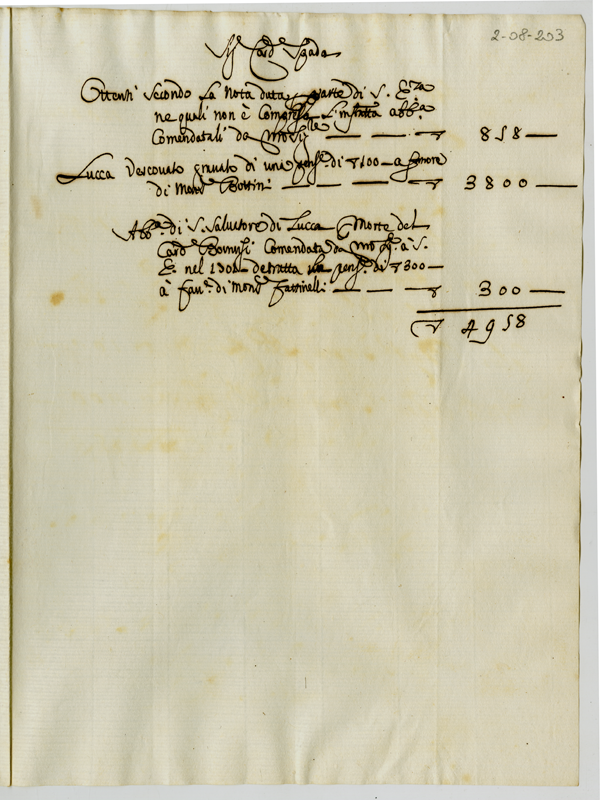 2-08-203
Sr. Card. Spada
Ottenti secondo la nota data parte di S. Eza
ne quali non è Compresa l'infratta abba.
Comendatali da — — — 858 —
Lucca Vescovato gravato di una pense. di 1100 — a favore
di Monsr. Bottini — — — 3800 —
Abba. di S. Salvatore di Lucca Morte del
Card. Bonvisi Comendata da à S.
E. nel 1301 — detratta la pense. di 300 —
à favre. di Monsr. Fattinelli — — — 300 —
4958